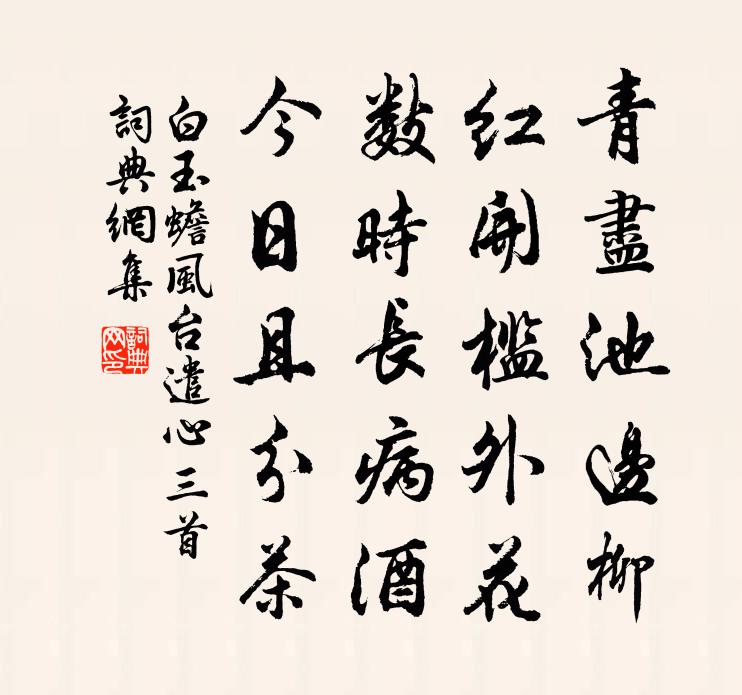 青盡池邊柳
红開檻外花
数時長病酒
今日且分茶
白玉蟾風台遣心三首
詞典網集
詞典網印